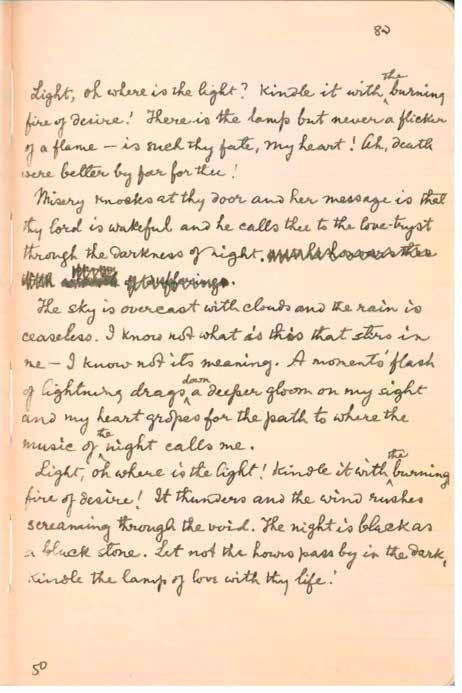 80
Light, oh where is the light? Kindle it with the burning
fire of desire! There is the lamp but never a flicker
of a flame — is such thy fate, my heart! Ah, death
were better by far for thee!
Misery knocks at thy door and her message is that
thy lord is wakeful and he calls thee to the love-tryst
through the darkness of night.
of sufferings.
The sky is overcast with clouds and the rain is
ceaseless. I know not what is this that stirs in
me — I know not its meaning. A moment's flash
of lightning drags down a deeper gloom on my sight
and my heart gropes for the path to where the
music of the night calls me.
Light, oh where is the light! Kindle it with the burning
fire of desire! It thunders and the wind rushes
screaming through the void. The night is black as
a black stone. Let not the hours pass by in the dark,
Kindle the lamp of love with thy life!
50